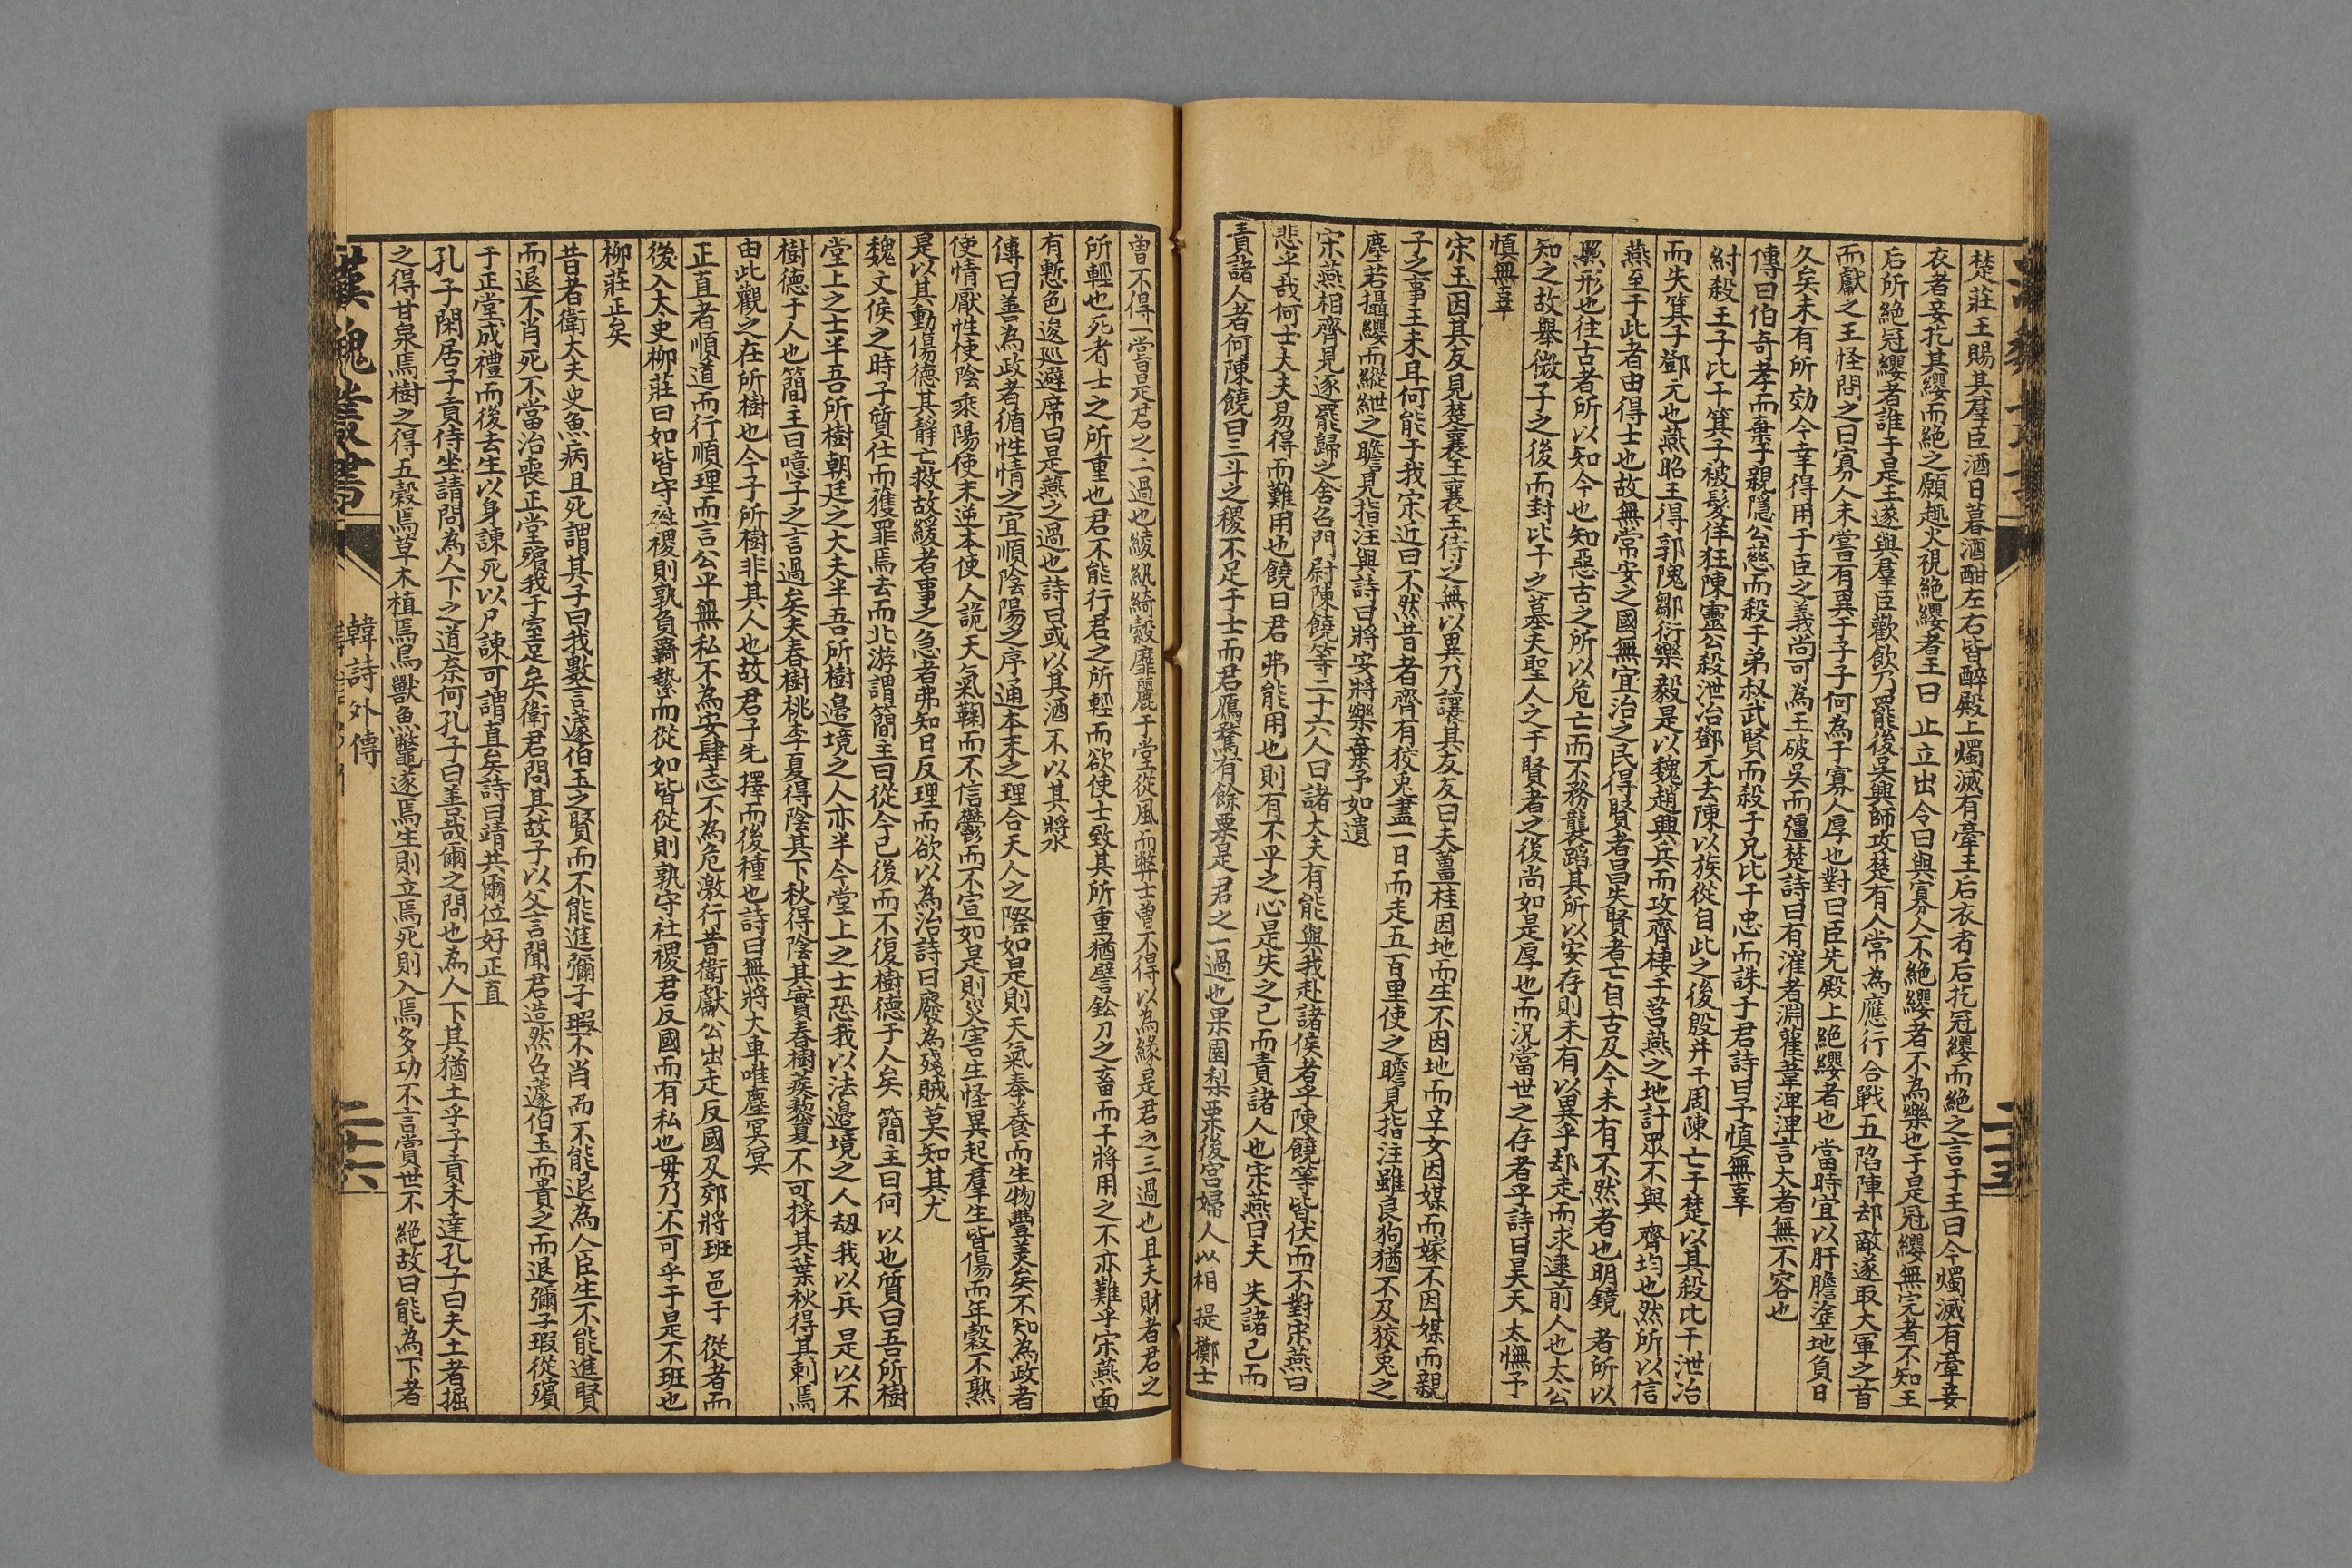 楚莊王賜其羣臣酒日暮酒酣左右皆醉殿上燭滅有牽王后衣者后扢冠纓而絶之言于王曰今燭滅有牽妾
衣者妾扢其纓而絶之願趣火視絶纓者王曰止立出令曰與寡人不絶纓者不為樂也于是冠纓無完者不知王
后所絶冠纓者誰于是王遂與羣臣歡飲乃罷後吳興師攻楚有人常為應行合戰五陷陣却敵遂取大軍之首
而獻之王怪問之曰寡人未嘗有異于子子何為于寡人厚也對曰臣先殿上絶纓者也當時宜以肝膽塗地負日
久矣未有所効今幸得用于臣之義尚可為王破吳而彊楚詩曰有漼者淵雚葦淠淠言大者無不容也
傳曰伯奇孝而棄于親隱公慈而殺于弟叔武賢而殺于兄比干忠而誅于君詩曰予慎無辜
紂殺王子比干箕子被髮佯狂陳靈公殺泄冶鄧元去陳以族從自此之後殷并于周陳亡于楚以其殺比干泄冶
而失箕子鄧元也燕昭王得郭隗鄒衍樂毅是以魏趙興兵而攻齊棲于莒燕之地計眾不與齊均也然所以信
燕至于此者由得士也故無常安之國無宜治之民得賢者昌失賢者亡自古及今未有不然者也明鏡者所以
照形也往古者所以知今也知惡古之所以危亡而不務襲蹈其所以安存則未有以異乎却走而求逮前人也太公
知之故舉微子之後而封比干之墓夫聖人之于賢者之後尚如是厚也而況當世之存者乎詩曰昊天太憮予
慎無辜
宋王因其友見楚襄王襄王待之無以異乃讓其友友曰夫薑桂因地而生不因地而辛女因媒而嫁不因媒而親
子之事王未耳何能于我宋近曰不然昔者齊有狡兎盡一日而走五百里使之瞻見指注雖良狗猶不及狡兎之
塵若攝纓而縱紲之瞻見指注與詩曰將安將樂棄予如遺
宋燕相齊見逐罷歸之舍召門尉陳饒等二十六人曰諸大夫有能與我赴諸侯者乎陳饒等皆伏而不對宋燕曰
悲乎哉何士大夫易得而難用也饒曰君弗能用也則有不平之心是失之己而責諸人也宋燕曰夫失諸己而
責諸人者何陳饒曰三斗之稷不足于士而君鴈鶩有餘粟是君之一過也果園梨栗後宮婦人以相提擲士
曾不得一嘗是君之二過也綾紈綺縠靡麗于堂從風而弊士曾不得以為緣是君之三過也且夫財者君之
所輕也死者士之所重也君不能行君之所輕而欲使士致其所重猶譬鉛刀之畜而干將用之不亦難乎宋燕面
有慙色逡巡避席曰是燕之過也詩曰或以其酒不以其將水
傳曰善為政者循性情之宜順陰陽之序通本末之理合天人之際如是則天氣奉養而生物豐美矣不知為政者
使情厭性使陰乘陽使末逆本使人詭天氣鞠而不信鬱而不宣如是則災害生怪異起羣生皆傷而年穀不熟
是以其動傷德其靜亡救故緩者事之急者弗知日反理而欲以為治詩曰廢為殘賊莫知其尤
魏文侯之時子質仕而獲罪焉去而北游謂簡主曰從今已後而不復樹德于人矣簡主曰何以也質曰吾所樹
堂上之士半吾所樹朝廷之大夫半吾所樹邊境之人亦半今堂上之士恐我以法邊境之人劫我以兵是以不
樹德于人也簡主曰噫子之言過矣夫春樹桃李夏得陰其下秋得陰其實春樹蒺藜夏不可採其葉秋得其刺焉
由此觀之在所樹也今子所樹非其人也故君子先擇而後種也詩曰無將大車唯塵冥冥
正直者順道而行順理而言公平無私不為安肆志不為危激行昔衛獻公出走反國及郊將班邑于從者而
後入太史柳莊曰如皆守社稷則孰負羈縶而從如皆從則孰守社稷君反國而有私也毋乃不可乎于是不班也
柳莊正矣
昔者衛大夫史魚病且死謂其子曰我數言蘧伯玉之賢而不能進彌子瑕不肖而不能退為人臣生不能進賢
而退不肖死不當治喪正堂殯我于室足矣衛君問其故子以父言聞君造然召蘧伯玉而貴之而退彌子瑕從殯
于正堂成禮而後去生以身諫死以尸諫可謂直矣詩曰靖共爾位好正直
孔子閑居子貢侍坐請問為人下之道奈何孔子曰善哉爾之問也為人下其猶土乎子貢未達孔子曰夫土者掘
之得甘泉焉樹之得五穀焉草木植焉鳥獸魚鼈遂焉生則立焉死則入焉多功不言賞世不絶故曰能為下者
漢魏叢書
韓詩外傳
二十六